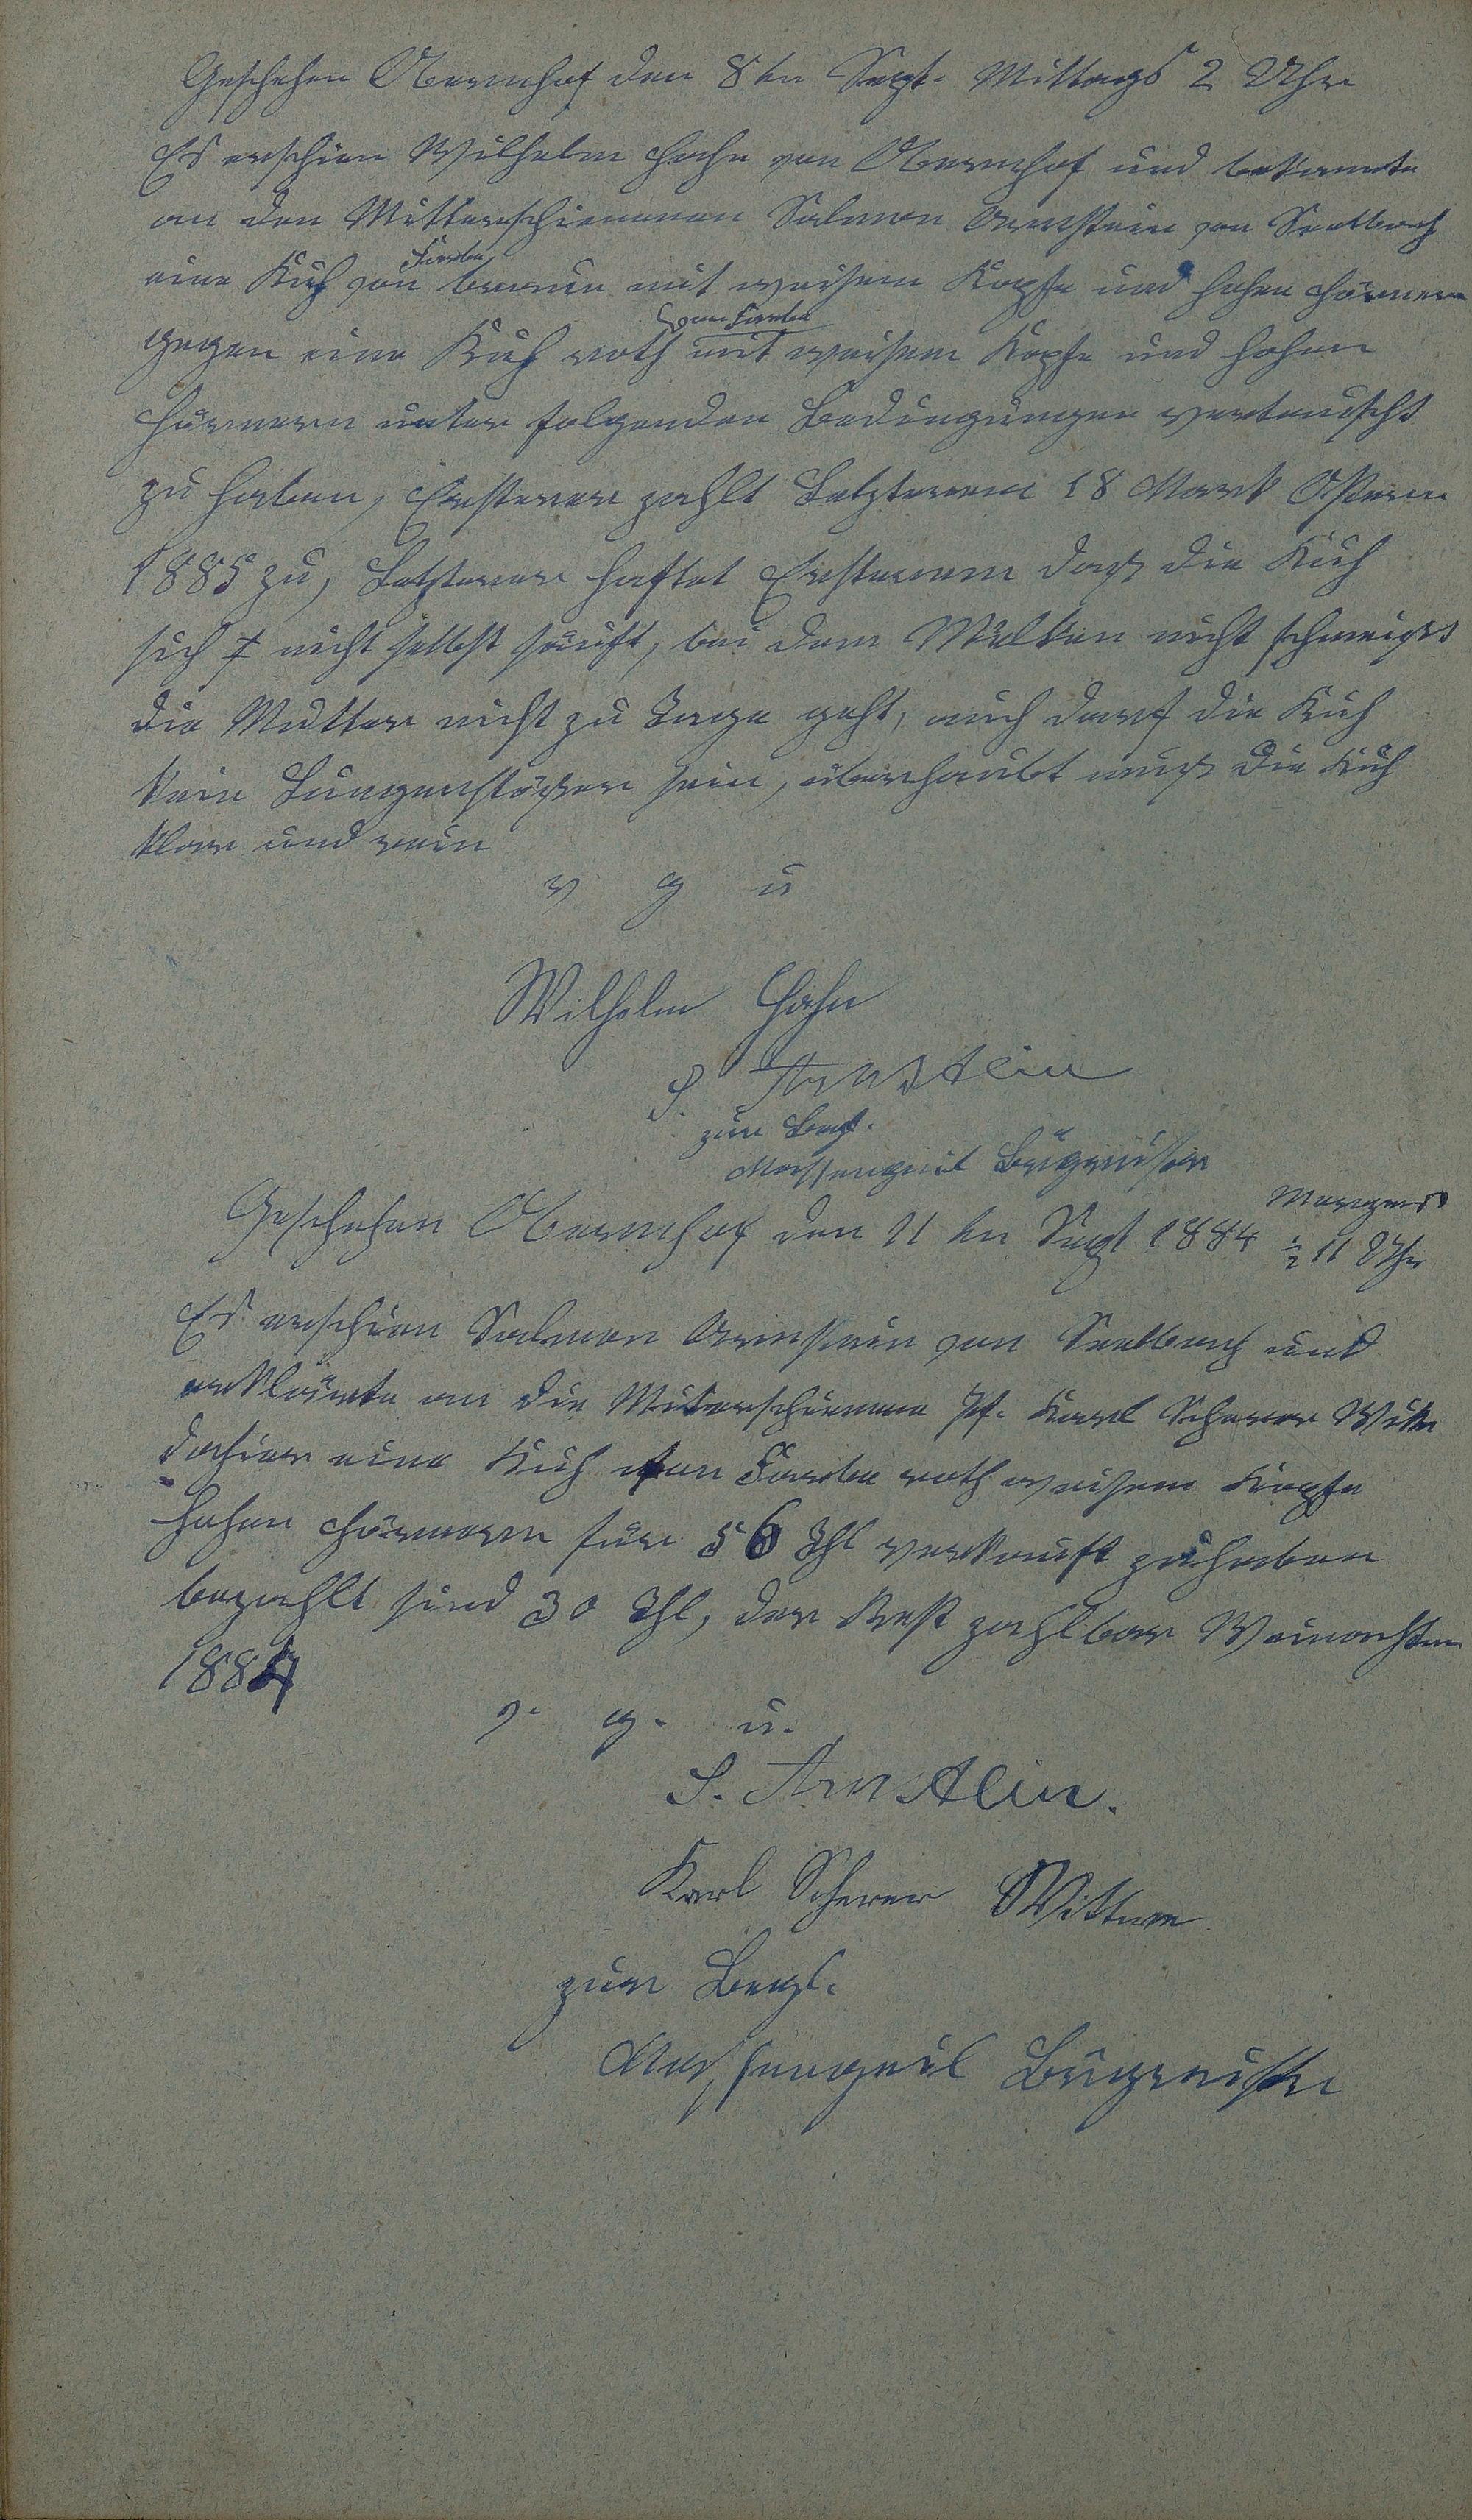 Geschehen Obernhof den 8ten Sept. Mittags 2 Uhr
Es erschien Wilhelm Hahn von Obernhof und bekannte
an den Mitterschienenen Salmon Arnstein von Seelbach
eine Kuh von Farbe braun mit weisem Kopfe und hohen Hörnern
gegen eine Kuh roth von Farbe mit weisem Kopfe und hohen
Hörnern unter folgenden Bedingungen vertauscht
zu haben, Ersterer zahlt Letzterem 18 Mark Ostern
1885 zu, Letzterer haftet Ersterem daß die Kuh
sich nicht selbst säuft, bei dem Melken nicht schmeißt
die Mutter nicht zu Tage geht, auch darf die Kuh
kein Lungenstößer sein, überhaubt muß die Kuh
klar und rein
v g u
Wilhelm Hahn
S. Arnstein
zur Begl.
Massengeil Bürgmeister
Geschehen Obernhof den 11ten Sept 1884 Morgens ½ 11 Uhr
Es erschien Salmon Arnstein von Seelbach und
erklärte an die Miterschienene Karl Scherer Witw
dahier eine Kuh von Farbe roth weisem Kopfe
hohen Hörnern für 56 Thl verkauft zu haben
bezahlt sind 30 Thl, der Rest zahlbar Weinachten
1884
v. g. u.
S. Arnstein.
Karl Scherer Wittwe
zur Begl.
Massengeil Bürgmeister